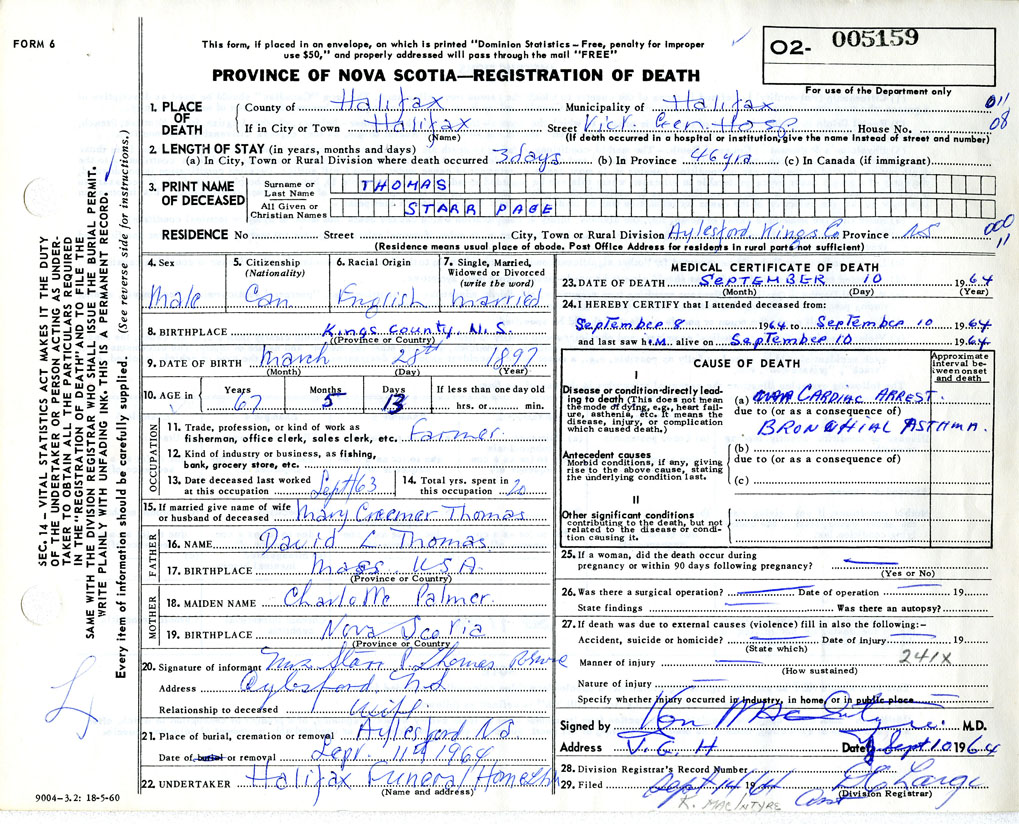 FORM 6
This form, if placed in an envelope, on which is printed "Dominion Statistics – Free, penalty for improper
use $50," and properly addressed will pass through the mail "FREE"
PROVINCE OF NOVA SCOTIA—REGISTRATION OF DEATH
02- 005159
For use of the Department only
SEC. 14 – VITAL STATISTICS ACT MAKES IT THE DUTY
OF THE UNDERTAKER OR PERSON ACTING AS UNDER-
TAKER TO OBTAIN ALL THE PARTICULARS REQUIRED
IN THE "REGISTRATION OF DEATH" AND TO FILE THE
SAME WITH THE DIVISION REGISTRAR WHO SHALL ISSUE THE BURIAL PERMIT.
WRITE PLAINLY WITH UNFADING INK. THIS IS A PERMANENT RECORD.
Every item of information should be carefully supplied. (See reverse side for instructions.)
1. PLACE OF DEATH
County of Halifax Municipality of Halifax 011
If in City or Town Halifax Street Vict. Gen. Hosp House No. 08
(Name) (If death occurred in a hospital or institution, give the name instead of street and number)
2. LENGTH OF STAY (in years, months and days)
(a) In City, Town or Rural Division where death occurred 3 days (b) In Province 46 yrs (c) In Canada (if immigrant)
3. PRINT NAME OF DECEASED
Surname or Last Name THOMAS
All Given or Christian Names STARR PAGE
RESIDENCE No Street City, Town or Rural Division Aylesford Kings Co Province NS 000
11
(Residence means usual place of abode. Post Office Address for residents in rural parts not sufficient)
4. Sex Male
5. Citizenship (Nationality) Can
6. Racial Origin English
7. Single, Married, Widowed or Divorced (write the word) married
8. BIRTHPLACE Kings County, N.S.
(Province or Country)
9. DATE OF BIRTH March 28th 1897
(Month) (Day) (Year)
10. AGE in Years 67 Months 5 Days 13 If less than one day old hrs. or min.
OCCUPATION
11. Trade, profession, or kind of work as
fisherman, office clerk, sales clerk, etc. Farmer.
12. Kind of industry or business, as fishing,
bank, grocery store, etc.
13. Date deceased last worked at this occupation Sept/63 14. Total yrs. spent in this occupation 20
15. If married give name of wife or husband of deceased Mary Creemer Thomas
FATHER
16. NAME David L. Thomas
17. BIRTHPLACE Mass. U.S.A.
(Province or Country)
MOTHER
18. MAIDEN NAME Charlotte Palmer.
19. BIRTHPLACE Nova Scotia
(Province or Country)
20. Signature of informant Mrs Starr P Thomas
Address Aylesford, NS
Relationship to deceased wife.
21. Place of burial, cremation or removal Aylesford NS
Date of burial or removal Sept. 11th 1964
22. UNDERTAKER Halifax Funeral Home
(Name and address)
MEDICAL CERTIFICATE OF DEATH
23. DATE OF DEATH SEPTEMBER 10 1964
(Month) (Day) (Year)
24. I HEREBY CERTIFY that I attended deceased from:
September 8 1964 to September 10 1964
and last saw h I.M. alive on September 10 1964
CAUSE OF DEATH
Approximate interval between onset and death
I
Disease or condition directly lead-
ing to death (This does not mean
the mode of dying, e.g., heart fail-
ure, asthenia, etc. It means the
disease, injury, or complication
which caused death.)
(a) CARDIAC ARREST.
due to (or as a consequence of)
BRONCHIAL ASTHMA.
Antecedent causes
Morbid conditions, if any, giving
rise to the above cause, stating
the underlying condition last.
(b)
due to (or as a consequence of)
(c)
II
Other significant conditions
contributing to the death, but not
related to the disease or condi-
tion causing it.
25. If a woman, did the death occur during
pregnancy or within 90 days following pregnancy?
(Yes or No)
26. Was there a surgical operation? Date of operation 19
State findings Was there an autopsy?
27. If death was due to external causes (violence) fill in also the following:–
Accident, suicide or homicide? Date of injury 19
(State which)
241X
Manner of injury
(How sustained)
Nature of injury
Specify whether injury occurred in industry, in home, or in public place
Signed by Ken MacIntyre M.D.
Address V.G.H Date Sept 10 1964
28. Division Registrar's Record Number
29. Filed Sept 14 1964
(Division Registrar)
K. MACINTYRE
9004–3.2: 18-5-60